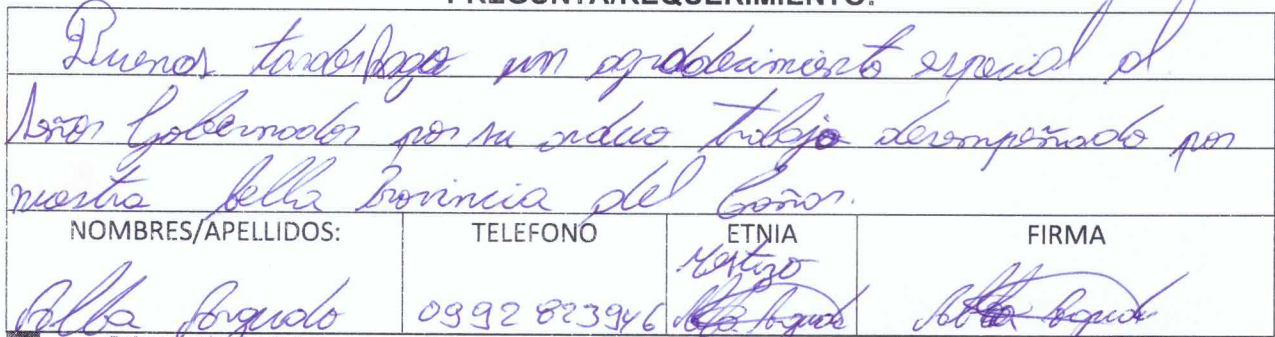 PREGUNTA/REQUERIMIENTO:
Buenas tardes hago un agradecimiento especial al
señor Gobernador por su arduo trabajo desempeñado por
nuestra bella Provincia del Cañar.
NOMBRES/APELLIDOS: TELEFONO ETNIA FIRMA
Mestizo
Alba 0992 823946